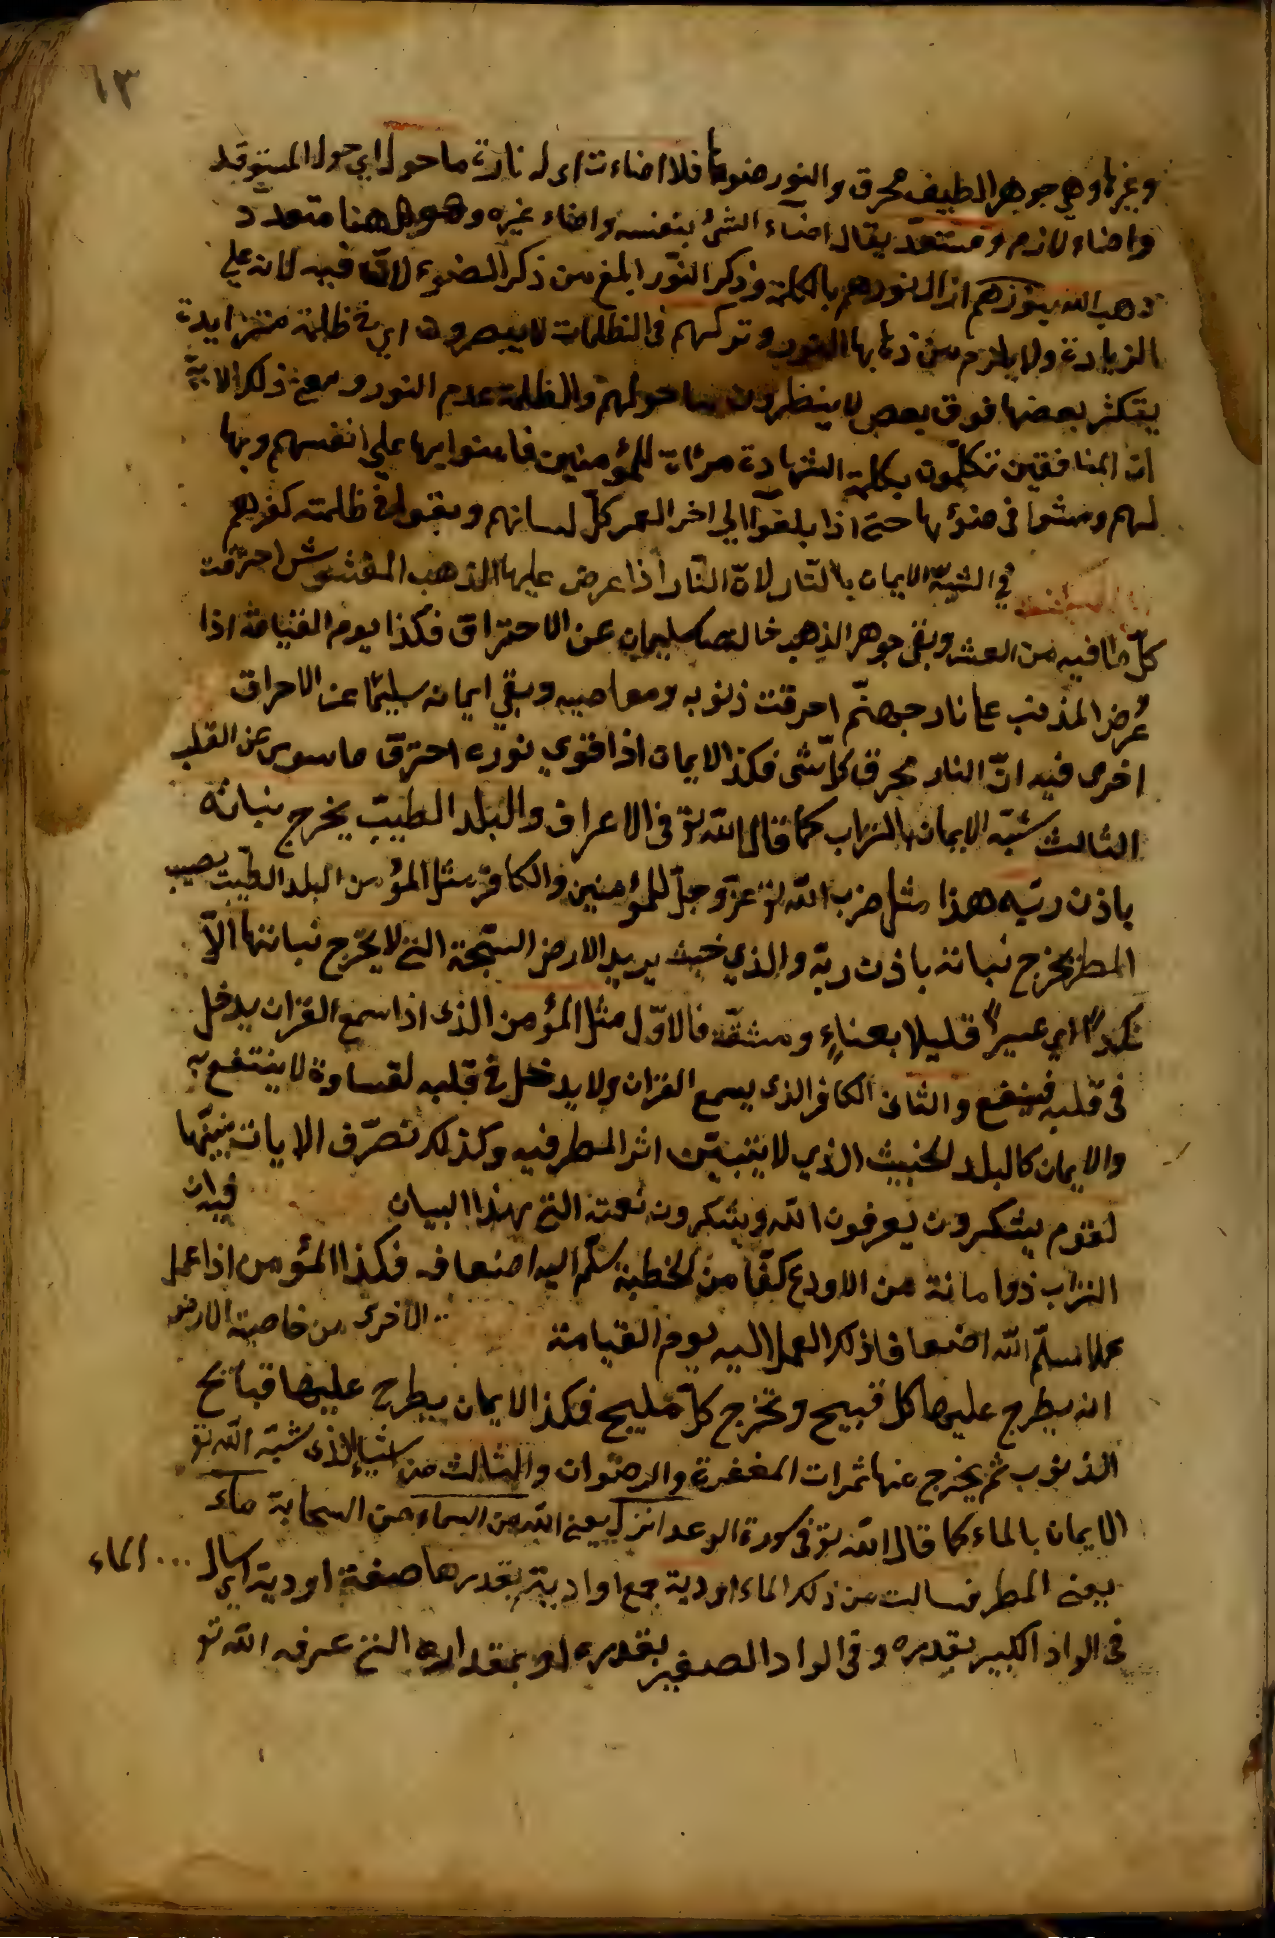 ١٣
وغيرها وهي جوهر لطيف محرق والنور ضوءها فلما اضاءت اى له نارة ما حوله اي حول المستوقد
واضاء لازم ومتعد يقال اضاء الشئ بنفسه واضاء غيره وهو ههنا متعدد
ذهب الله بنورهم ازال نورهم بالكلية وذكر النور ابلغ من ذكر الضوء لان فيه لانه علي
الزيادة ولا يلزم من ذهابها النور وتركهم فى الظلمات لا يبصرون اي في ظلمة متزايدة
يتكثر بعضها فوق بعض لا ينظرون ما حولهم والظلمة عدم النور ومعنى ذلك الاية
ان المنافقين تكلمون بكلمة الشهادة مرئاة للمؤمنين فامنوا بها علي انفسهم وبها
لهم ومشوا فى ضوئها حتى اذا بلغوا الي اخر العمر كل لسانهم وبقوا في ظلمة كفرهم
في الشبه الايمان بالنار لان النار اذا عرض عليها الذهب المغشوش احرقت
كل ما فيه من الغش وبقى جوهر الذهب خالصا سليما عن الاحتراق فكذا يوم القيامة اذا
عُرض المذنب على نار جهنم احرقت ذنوبه ومعاصيه وبقي ايمانه سليما عن الاحراق
اخرى فيه ان النار محرق كل شى فكذ الايمان اذا قوي نوره احترق ما سوى عن القلب
الثالث شبه الايمان بالتراب كما قال الله تع فى الاعراف والبلد الطيب يخرج نباته
باذن ربه هذا مثل ضرب الله تع عز وجل للمؤمنين والكافر مثل المؤمن البلد الطيب يصيب
المطر يخرج نباته باذن ربه والذي خبث يريد الارض السبخة التى لا يخرج نباتها الا
نكدا اي عسيرا قليلا بعناء ومشقة فالاول مثل المؤمن الذى اذا سمع القران يدخل
فى قلبه فينفع والثانى الكافر الذى يسمع القران ولا يدخل في قلبه لقساوة لا ينتفع به
والايمان كالبلد الخبيث الذي لا يتبين اثر المطر فيه وكذلك نصرف الايات نبينها
لقوم يشكرون يعرفون الله ويشكرون نعمته التى بهذا البيان فيه ان
التراب ذو امانة من الاودع كفا من الحطبة سلم اليه اضعافه فكذا المؤمن اذا عمل
عملا سلم الله اضعافا ذلك العمل اليه يوم القيامة الاخرى من خاصية الارض
انه يطرح عليها كل قبيح وتخرج كل مليح فكذ الايمان يطرح عليها قبائح
الذنوب ثم يخرج عنها ثمرات المغفرة والرضوان والثالث من شياء الذى شبه الله تع
الايمان بالماء كما قال الله تع فى سورة الرعد انزل يعنى الله من السماء من السحابة ماء
يعنى المطر فسالت من ذلك الماء اودية جمع اوادية بقدرها صفة اودية اي سال ... الماء
فى الواد الكبير بقدره وفى الواد الصغير بقدره او بمقداره التى عرفه الله تع